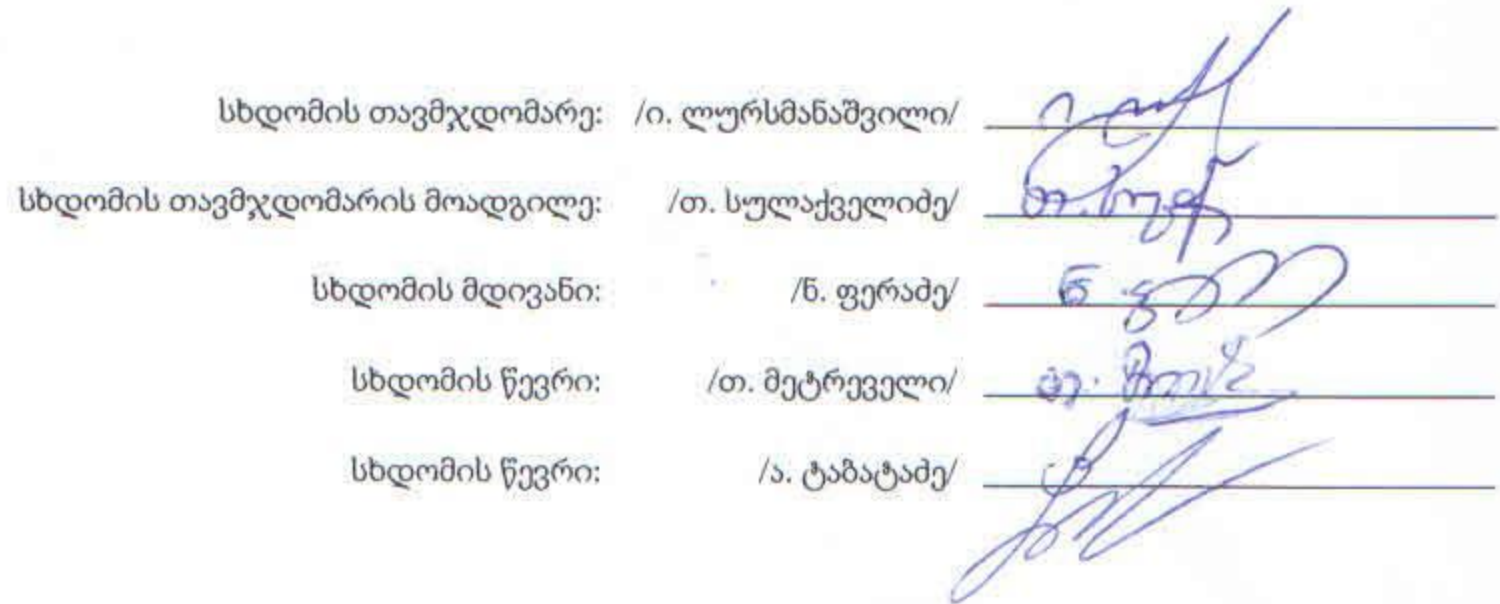 სხდომის თავმჯდომარე: /ი. ლურსმანაშვილი/
სხდომის თავმჯდომარის მოადგილე: /თ. სულაქველიძე/
სხდომის მდივანი: /ნ. ფერაძე/
სხდომის წევრი: /თ. მეტრეველი/
სხდომის წევრი: /ა. ტაბატაძე/